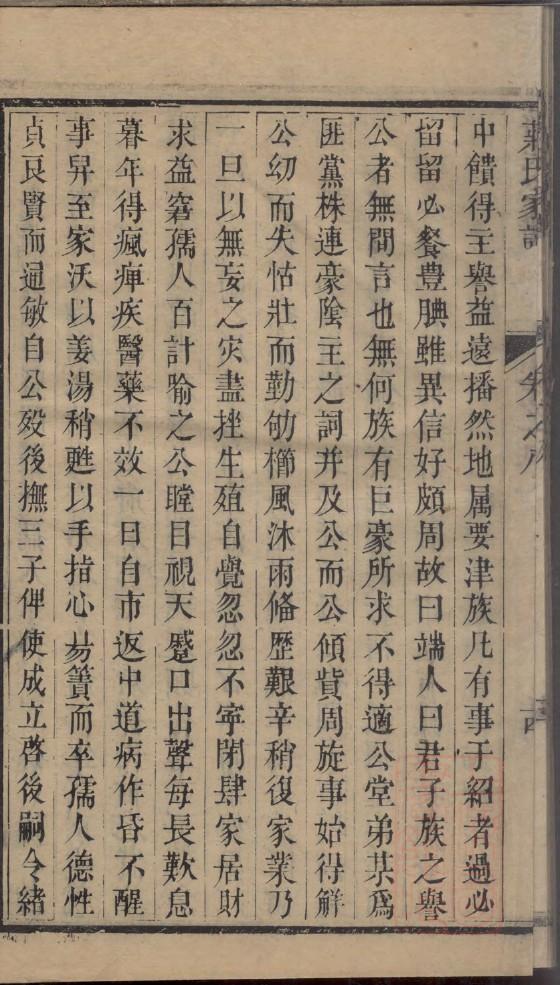 中饋得主譽益遠播然地属要津族凢有事于紹者過必
留留必餐豊腆雖異信好頗周故曰端人曰君子族之譽
公者無間言也無何族有巨豪所求不得適公堂弟某爲
匪黨株連豪陰主之詞并及公而公傾貲周旋事始得觧
公幼而失怙壯而勤劬櫛風沐雨俻歴艱辛稍復家業乃
一旦以無妄之灾盡挫生殖自覺忽忽不寧閉肆家居財
求益窘孺人百計喻之公瞠目視天蹙口出聲每長歎息
暮年得瘋痺疾醫藥不效一日自市返中道病作昏不醒
事舁至家沃以姜湯稍甦以手指心易簀而卒孺人德性
貞良賢而通敏自公殁後撫三子俾使成立啓後嗣令緒
氏家
卷之八